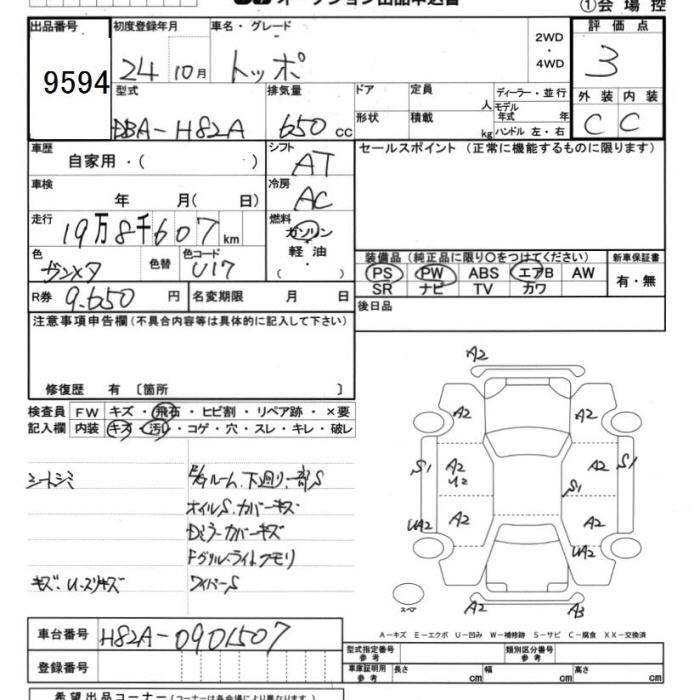 オークション出品申込書
①会場控
出品番号
初度登録年月
車名・グレード
評価点
9594
24 10月
トッポ
2WD
・
4WD
3
型式
排気量
ドア
定員
人
ディーラー・並行
外装 内装
DBA-H82A
650 cc
形状
積載
kg
モデル年式 年
ハンドル 左・右
C C
車歴
自家用・( )
シフト
AT
セールスポイント (正常に機能するものに限ります)
車検
年 月( 日)
冷房
AC
走行
19万8千607km
燃料
ガソリン
軽油
・
( )
色
ガンメタ
色替
色コード
U17
装備品 (純正品に限り○をつけてください)
新車保証書
PS PW ABS エアB AW
SR ナビ TV カワ
有・無
R券 9,650 円
名変期限 月 日
後日品
注意事項申告欄(不具合内容等は具体的に記入して下さい)
修復歴 有 〔箇所 〕
検査員
記入欄
FW キズ・飛石・ヒビ割・リペア跡・×要
内装 キズ・汚れ・コゲ・穴・スレ・キレ・破レ
シートシミ
E/gルーム、下廻り、一部S
オイルS、カバーキズ
Dミラーカバーキズ
Fグリル・ライトクモリ
キズ・U・スリキズ
ワイパーS
A2
A2
A2
S1
A2
U2
A2
S1
S1
UA2
A2
A2
UA2
スペア
A2
A3
A-キズ E-エクボ U-凹み W-補修跡 S-サビ C-腐食 XX-交換済
車台番号
H82A-0901507
登録番号
型式指定番号
参考
類別区分番号
参考
車庫証明用
参考
長さ cm
幅 cm
高さ cm
希望出品コーナー(コーナーは各会場により異なります)